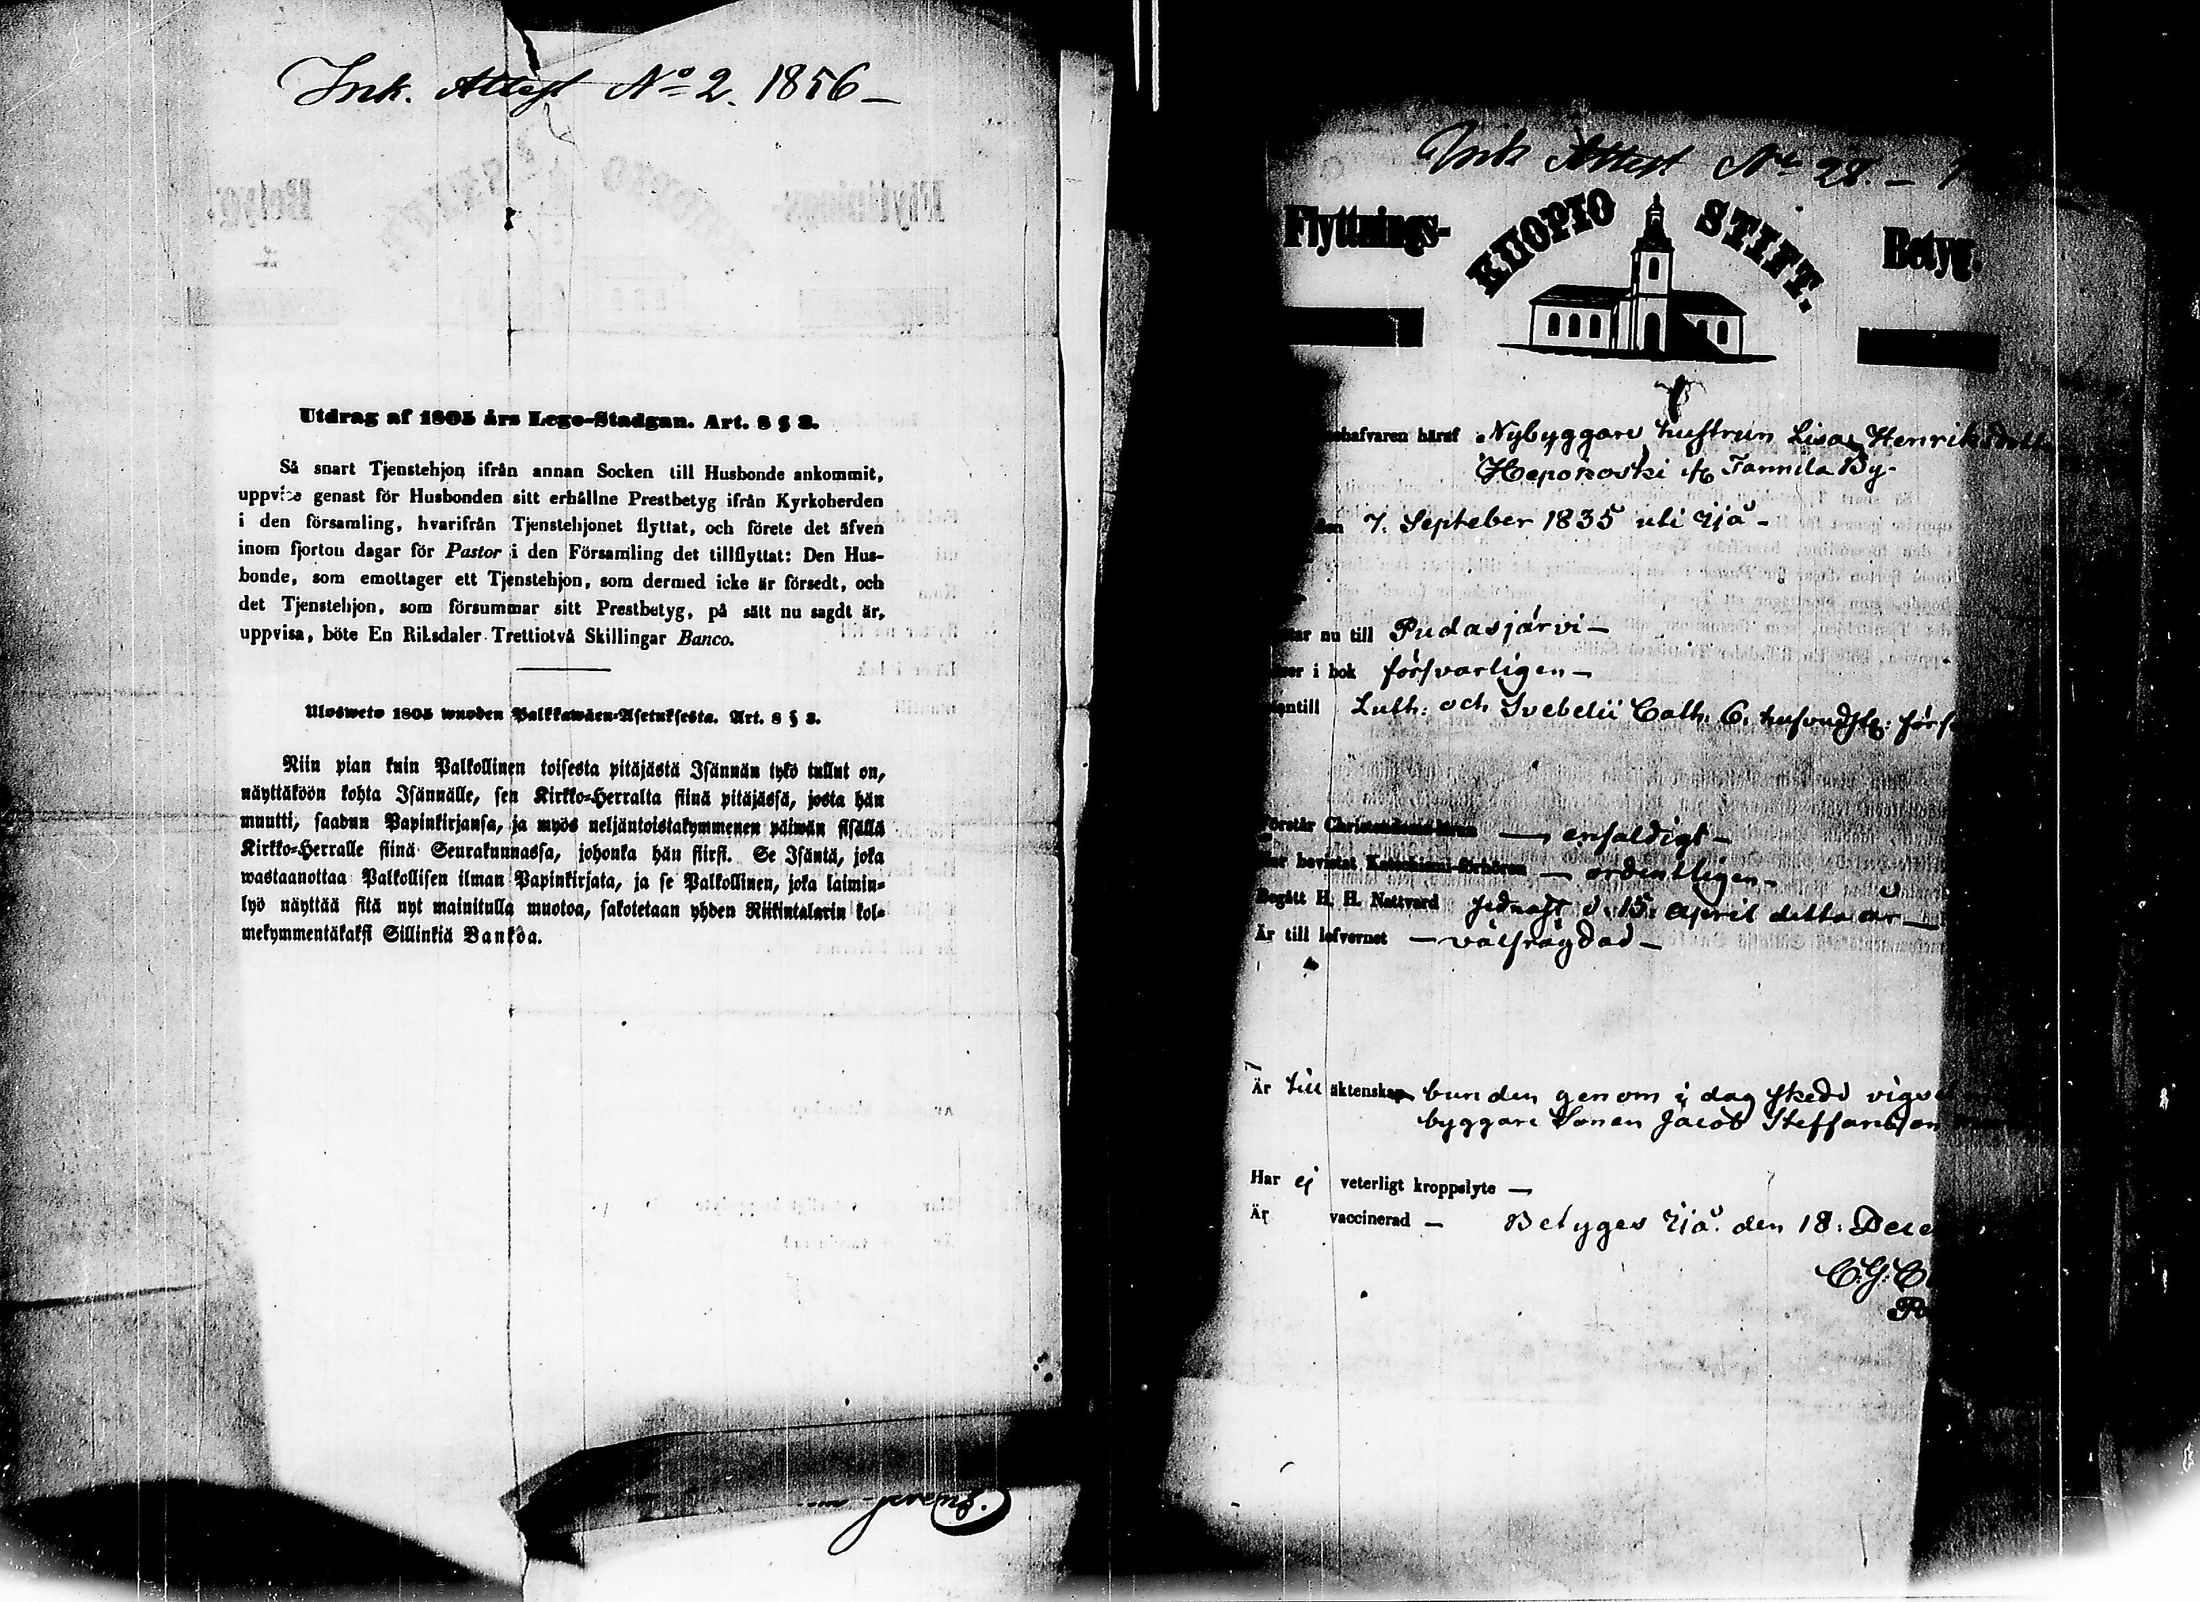 Ink. Attest No 2. 1856 –
Utdrag af 1805 års Lego-Stadgan. Art. 8 § 2.
Så snart Tjenstehjon ifrån annan Socken till Husbonde ankommit,
uppvise genast för Husbonden sitt erhållne Prestbetyg ifrån Kyrkoherden
i den församling, hvarifrån Tjenstehjonet flyttat, och förete det äfven
inom fjorton dagar för Pastor i den Församling det tillflyttat: Den Hus-
bonde, som emottager ett Tjenstehjon, som dermed icke är försedt, och
det Tjenstehjon, som försummar sitt Prestbetyg, på sätt nu sagdt är,
uppvisa, böte En Riksdaler Trettiotvå Skillingar Banco.
Uloswето 1805 wuoden Palkkawäen-Asetuksesta. Art. 8 § 2.
Niin pian kuin Palkollinen toisesta pitäjästä Isännän tykö tullut on,
näyttäköön kohta Isännälle, sen Kirkko-Herralta siinä pitäjässä, josta hän
muutti, saadun Papinkirjansa, ja myös neljäntoistakymmenen päiwän sisällä
Kirkko-Herralle siinä Seurakunnassa, johonka hän siirsi. Se Isäntä, joka
wastaanottaa Palkollisen ilman Papinkirjata, ja se Palkollinen, joka laimin-
lyö näyttää sitä nyt mainitulla muotoa, sakotetaan yhden Riikintalarin kol-
mekymmentäkaksi Sillinkiä Bankoa.
Ink Attest No 28. –
Flyttnings- KUOPIO STIFT. Betyg.
nehafvaren häraf Nybyggare hustrun Lisa Henriksdotte
Heponoski fr Tannila By-
den 7. Septeber 1835 uti Ijå –
tar nu till Pudasjärvi –
ser i bok försvarligen –
antill Luth: och Svebelii Cath. 6. husvudstr: förs
örstår Christendoms-läran – enfaldigt –
ar bevistat Katechismi-förhören – ordentligen –
Begått H. H. Nattvard sednast d. 15. April detta år –
Är till lefvernet – välfrägdad –
Är till äktenskap bunden genom i dag skedd vigs
byggare Sonen Jacob Steffansson
Har ej veterligt kroppslyte –
Är vaccinerad – Betyges Ijå. den 18: Dece
C. G. C
Pa